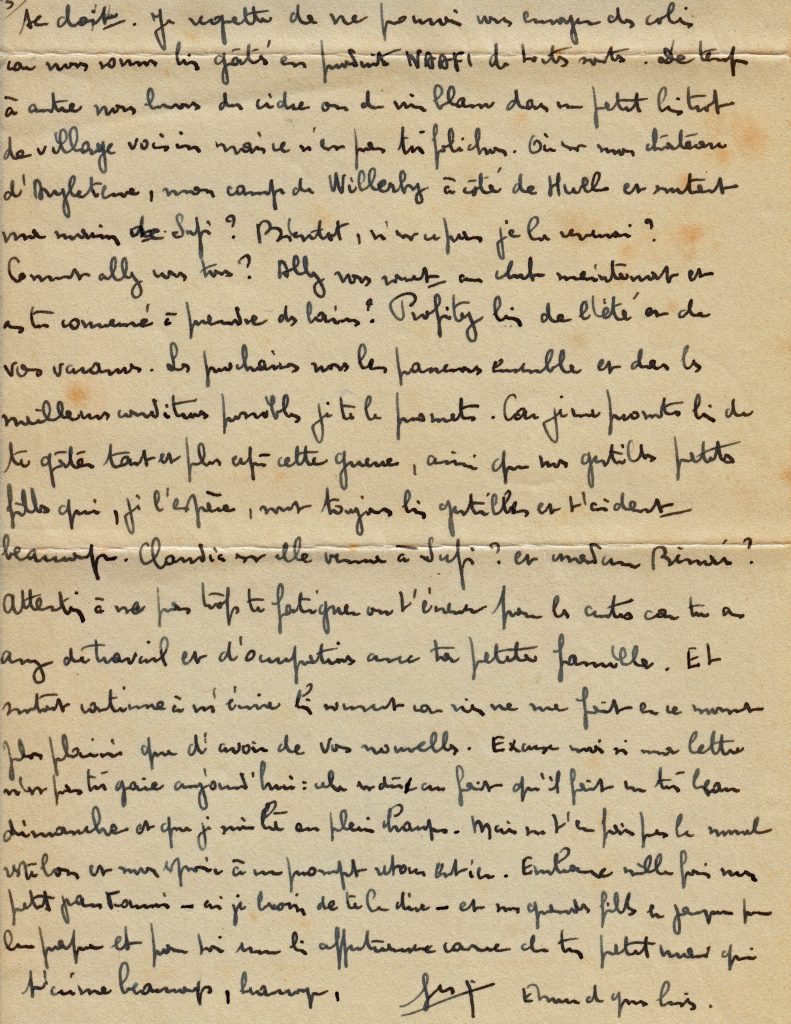 se doit. Je regrette de ne pouvoir vous envoyer des colis
car nous sommes bien gâtés en produits NAAFI de toutes sortes. De temps
à autre nous buvons du cidre ou du vin blanc dans un petit bistrot
de village voisin mais ce n'est pas très folichon. Où est mon château
d'Angleterre, mon camp de Willerby à côté de Hull et surtout
ma maison de ? Bientôt, n'est ce pas je la reverrai ?
Comment allez vous tous ? Allez vous souvent au club maintenant et
as tu commencé à prendre des bains ? Profitez bien de l'été et de
vos vacances. Les prochaines nous les passerons ensemble et dans les
meilleures conditions possibles je te le promets. Car je me promets bien de
te gâter tant et plus après cette guerre, ainsi que nos gentilles petites
filles qui, je l'espère, sont toujours bien gentilles et t'aident
beaucoup. Claudia est elle venue à ? et madame ?
Attention à ne pas trop te fatiguer ou t'énerver pour les autres car tu as
assez de travail et d'occupations avec ta petite famille. Et
surtout continue à m'écrire bien souvent car rien ne me fait en ce moment
plus plaisir que d'avoir de vos nouvelles. Excuse moi si ma lettre
n'est pas très gaie aujourd'hui : cela est dû au fait qu'il fait un très beau
dimanche et que je suis là en plein champs. Mais ne t'en fais pas le moral
est bon et nous espoir à un prompt retour . Embrasse mille fois nos
petit - ai je besoin de te le dire - et nos grandes filles
papa et pour toi une caresse de ton petit mari qui
t'aime beaucoup, beaucoup,